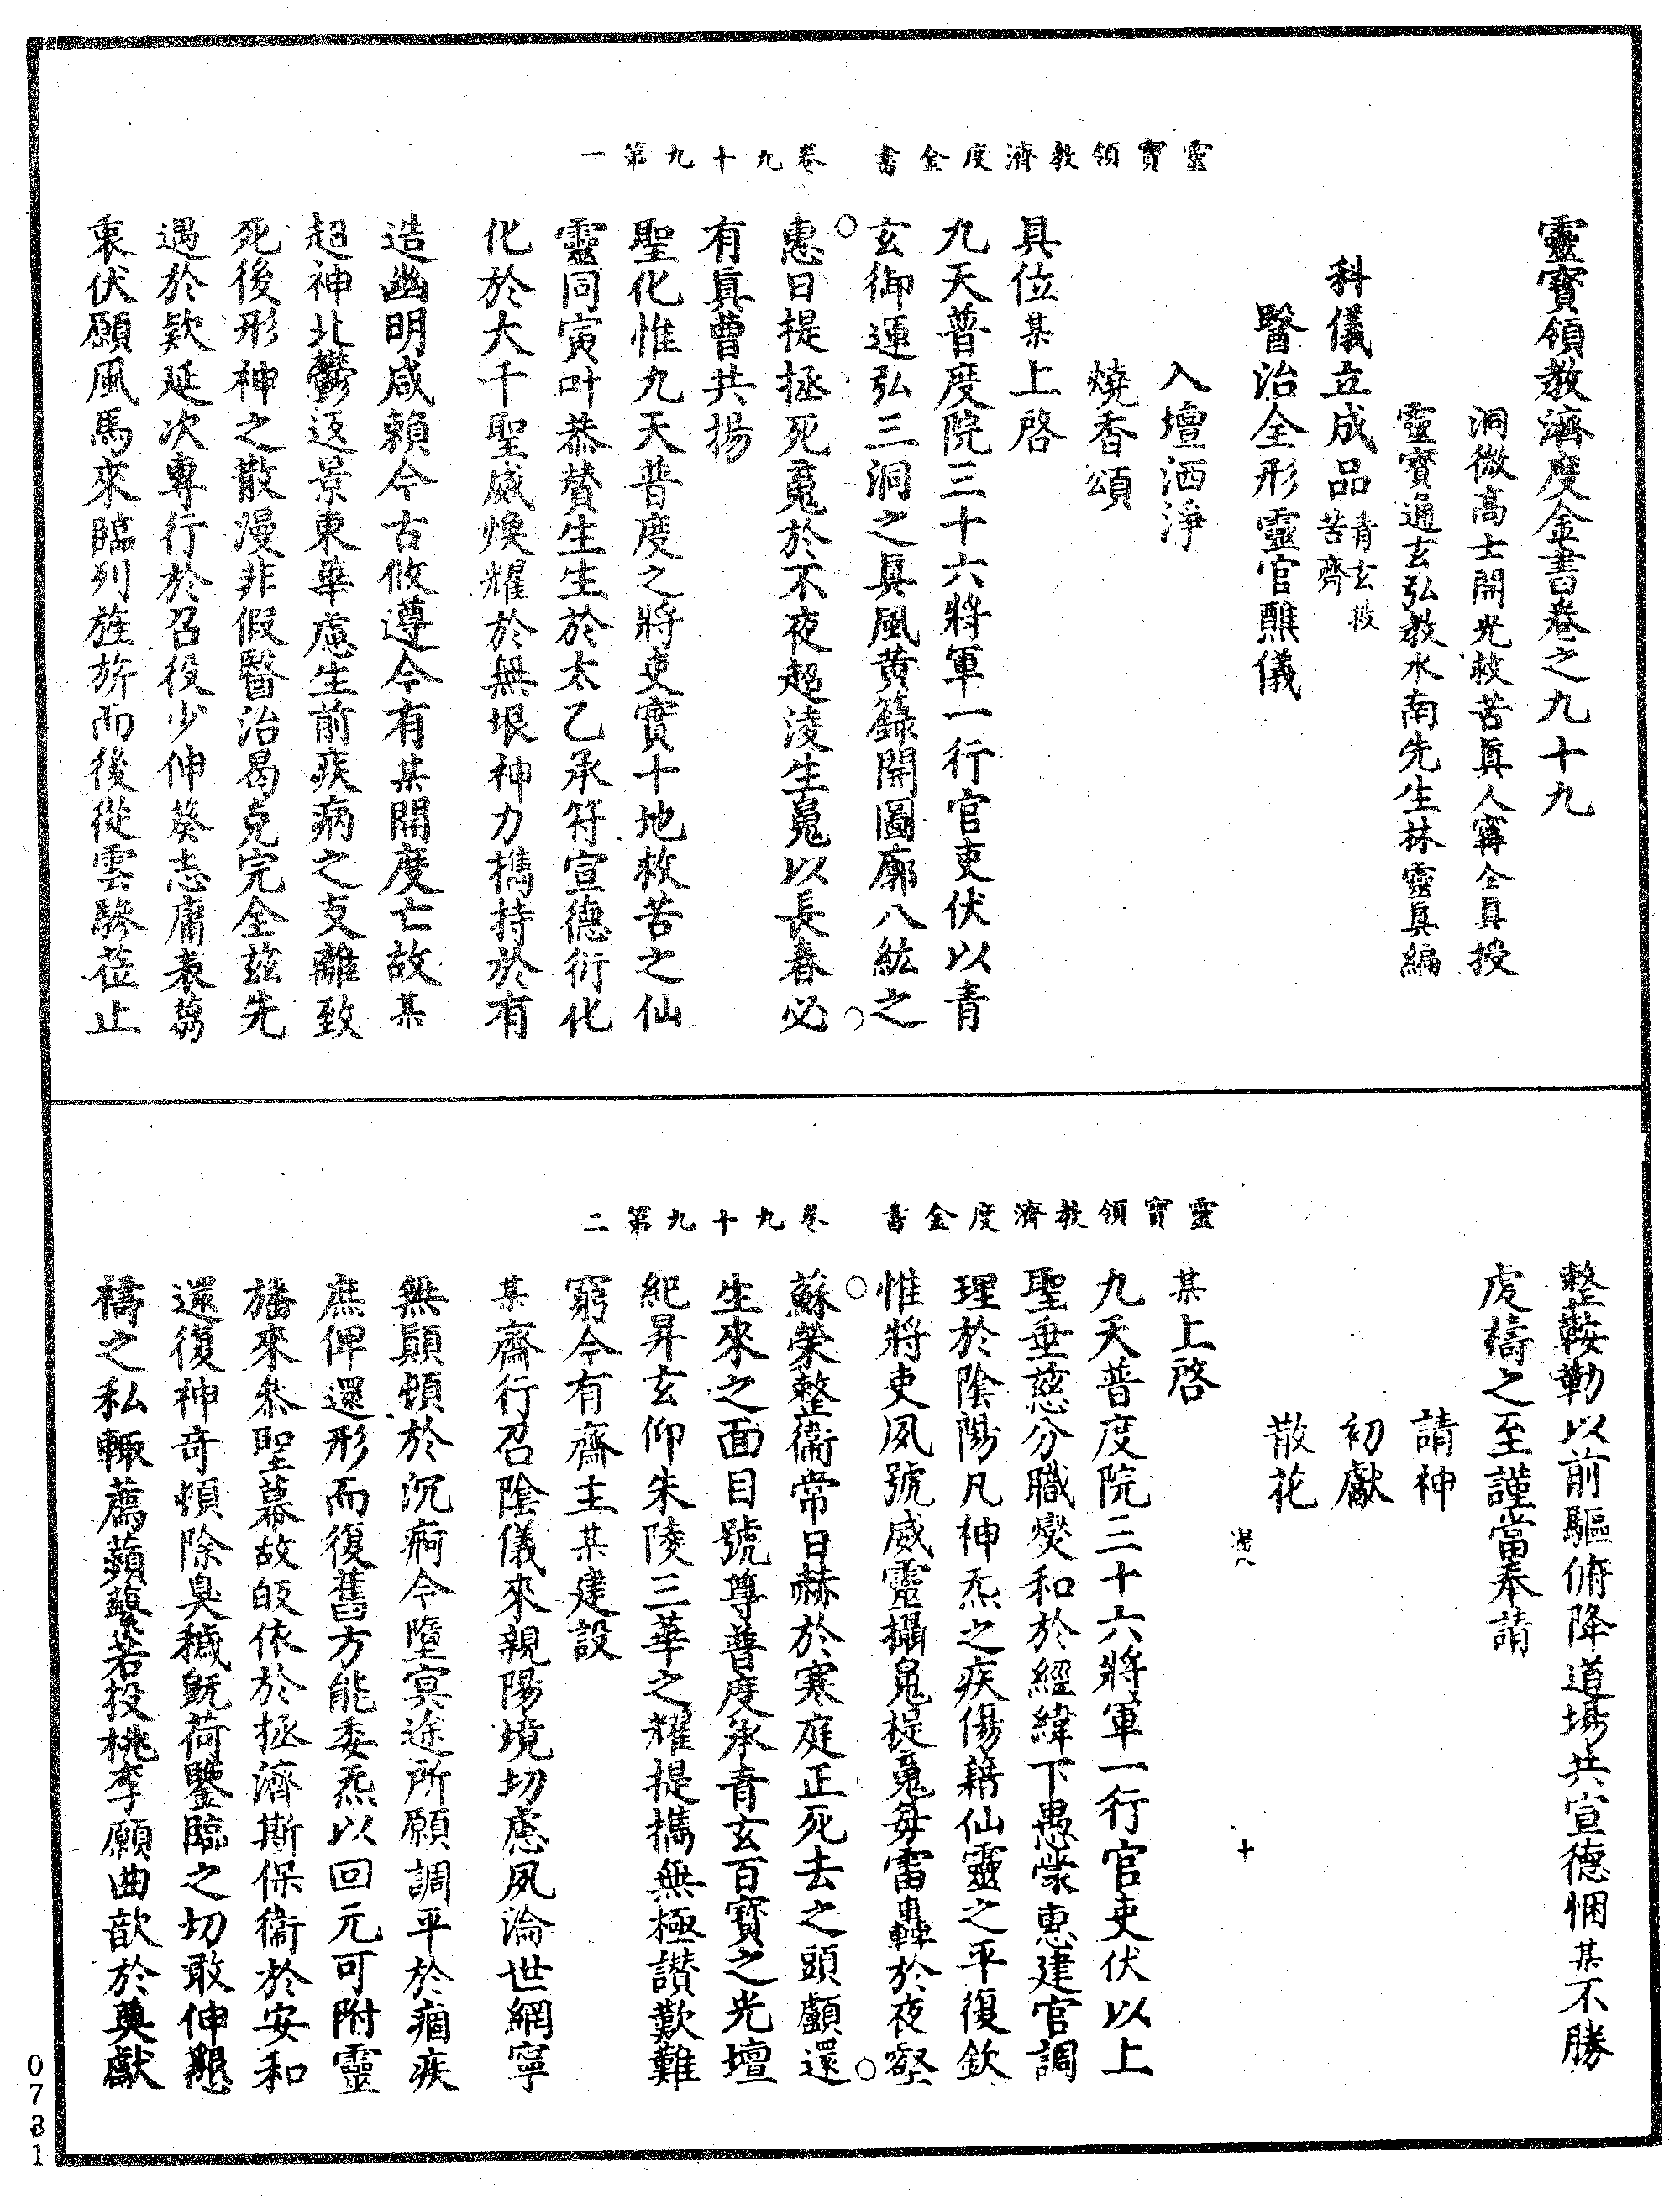 靈寶領教濟度金書卷之九十九
洞微高士開光救苦真人寗全真授
靈寶通玄弘教水南先生林靈真編
科儀立成品青玄拔苦齊
醫治全形靈官醮儀
入壇洒淨
燒香頌
具位某上啓
九天普度院三十六將軍一行官吏伏以青
玄御運弘三洞之真風黄籙開圖廓八紘之
惠日提拯死䰟於不夜超淩生䰟以長春必
有真曹共揚
聖化惟九天普度之將吏實十地救苦之仙
靈同寅叶恭賛生生於太乙承符宣德衍化
化於大千聖威煥耀於無垠神力擕持於有
造幽明咸賴今古攸遵今有某開度亡故某
超神北鬱返景東華慮生前疾病之支離致
死後形神之散漫非假醫治曷克完全兹先
遇於欵延次専行於召役少伸葵志庸表蒭
東伏願風馬來臨列旌旂而後從雲驂莅止
靈寶領教濟度金書 卷九十九第一
整鞍勒以前驅俯降道場共宣德悃某不勝
虔禱之至謹當奉請
請神
初獻
散花
某上啓
九天普度院三十六將軍一行官吏伏以上
聖垂慈分職燮和於經緯下愚蒙惠建官調
理於陰陽凡神炁之疾傷籍仙靈之平復欽
惟將吏夙號威靈攝䰟提魄每雷轟於夜壑
蘇榮整衞常日赫於寒庭正死去之頭顱還
生來之面目號尊普度承青玄百寶之光壇
紀昇玄仰朱陵三華之耀提擕無極讃歎難
窮今有齋主某建設
某齋行召陰儀來親陽境切慮夙淪世網寜
無顛頓於沉痾今墮冥途所願調平於痼疾
庶俾還形而復舊方能委炁以回元可附靈
旛來叅聖幕故皈依於拯濟斯保衞於安和
還復神竒頓除臭穢旣荷鑒臨之切敢伸懇
禱之私輙薦蘋蘩若投桃李願曲歆於奠獻
靈寶領教濟度金書 卷九十九第二
十
0731